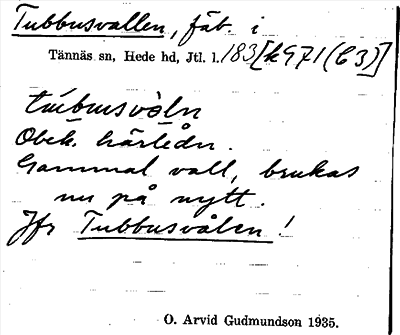 Tubbusvallen, fäb. i
Tännäs sn, Hede hd, Jtl. l. 183 [k971(C3)]
Obek. härledn.
Gammal vall, brukas
nu på nytt.
Jfr Tubbusvålen!
O. Arvid Gudmundson 1935.